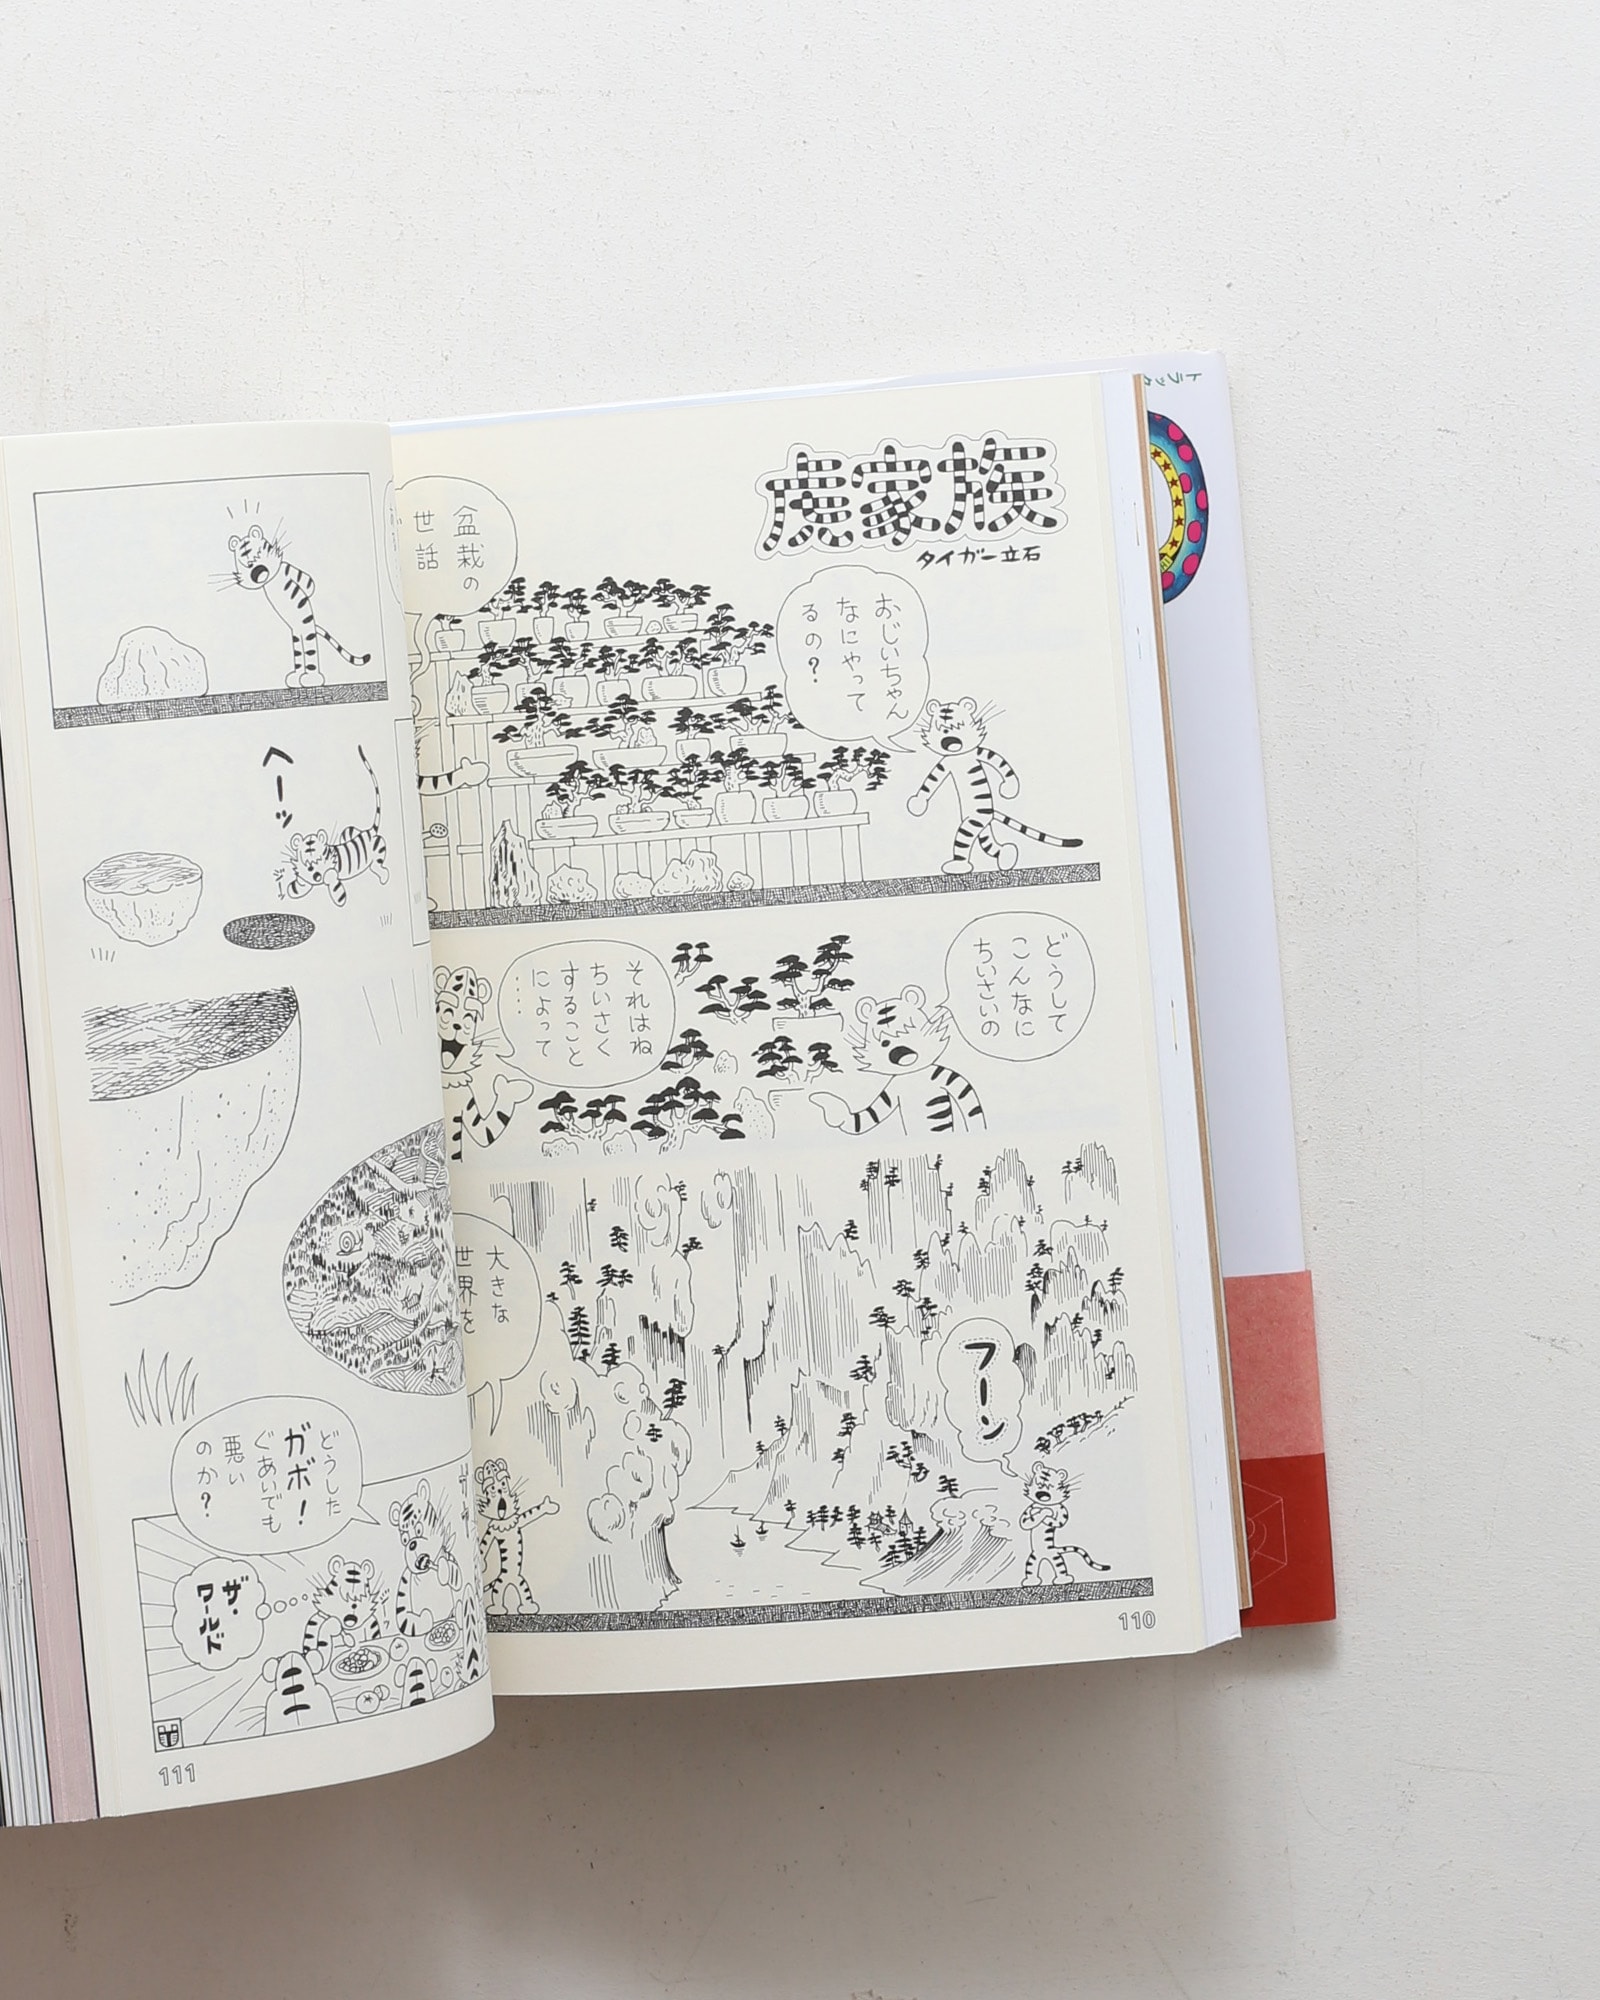 虎家族
タイガー立石
おじいちゃん
なにやって
るの?
盆栽の
世話
どうして
こんなに
ちいさいの
それはね
ちいさく
すること
によって
‥‥
大きな
世界を
フーン
110
ヘーッ
どうした
ガボ!
ぐあいでも
悪い
のか?
ザ・
ワールド
111
トラック